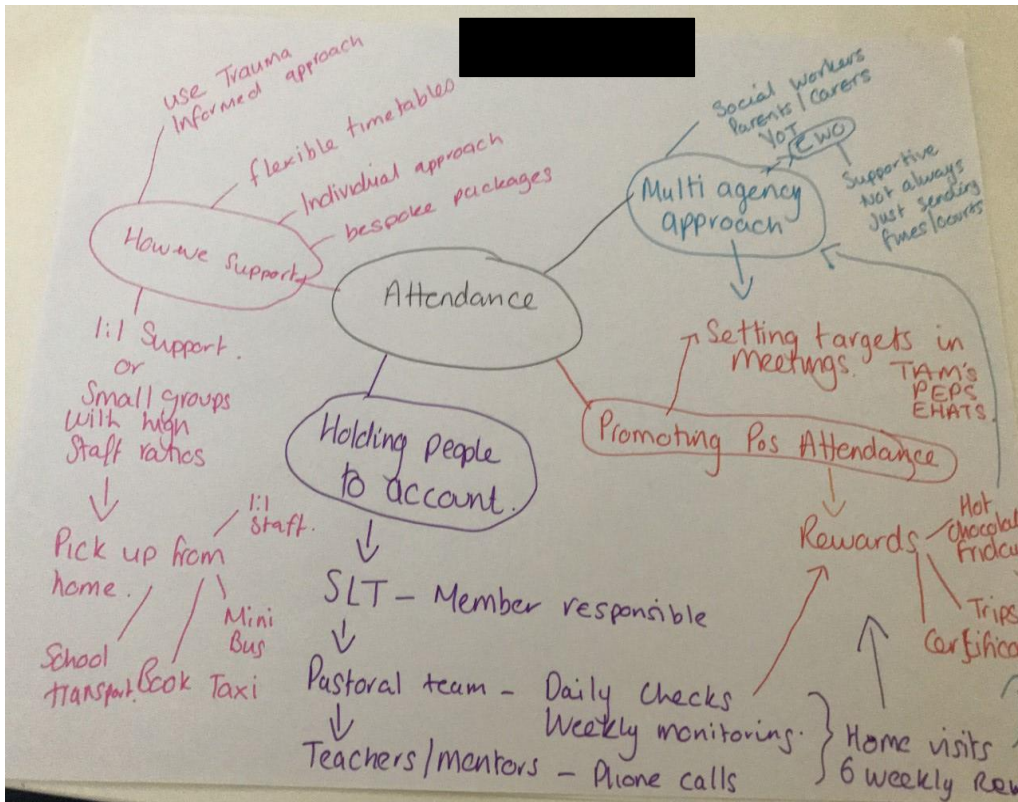 use Trauma
Informed approach
flexible timetables
Individual approach
bespoke packages
How we support
1:1 Support.
or
Small groups
With high
Staff ratios
Pick up from
home.
1:1
Staff.
Mini
Bus
School
transport.
Book Taxi
Attendance
Social workers
Parents/Carers
YOT
EWO
Supportive
Not always
Just sending
fines/courts
Multi agency
approach
Setting targets in
meetings.
TAM's
PEPS
EHATS.
Promoting Pos Attendance
Rewards
Hot
Chocolat
Frida
Trips
Certifica
Holding people
to account.
SLT - Member responsible
Pastoral team - Daily Checks
Weekly monitoring.
Teachers/mentors - Phone calls
Home visits
6 weekly Rev